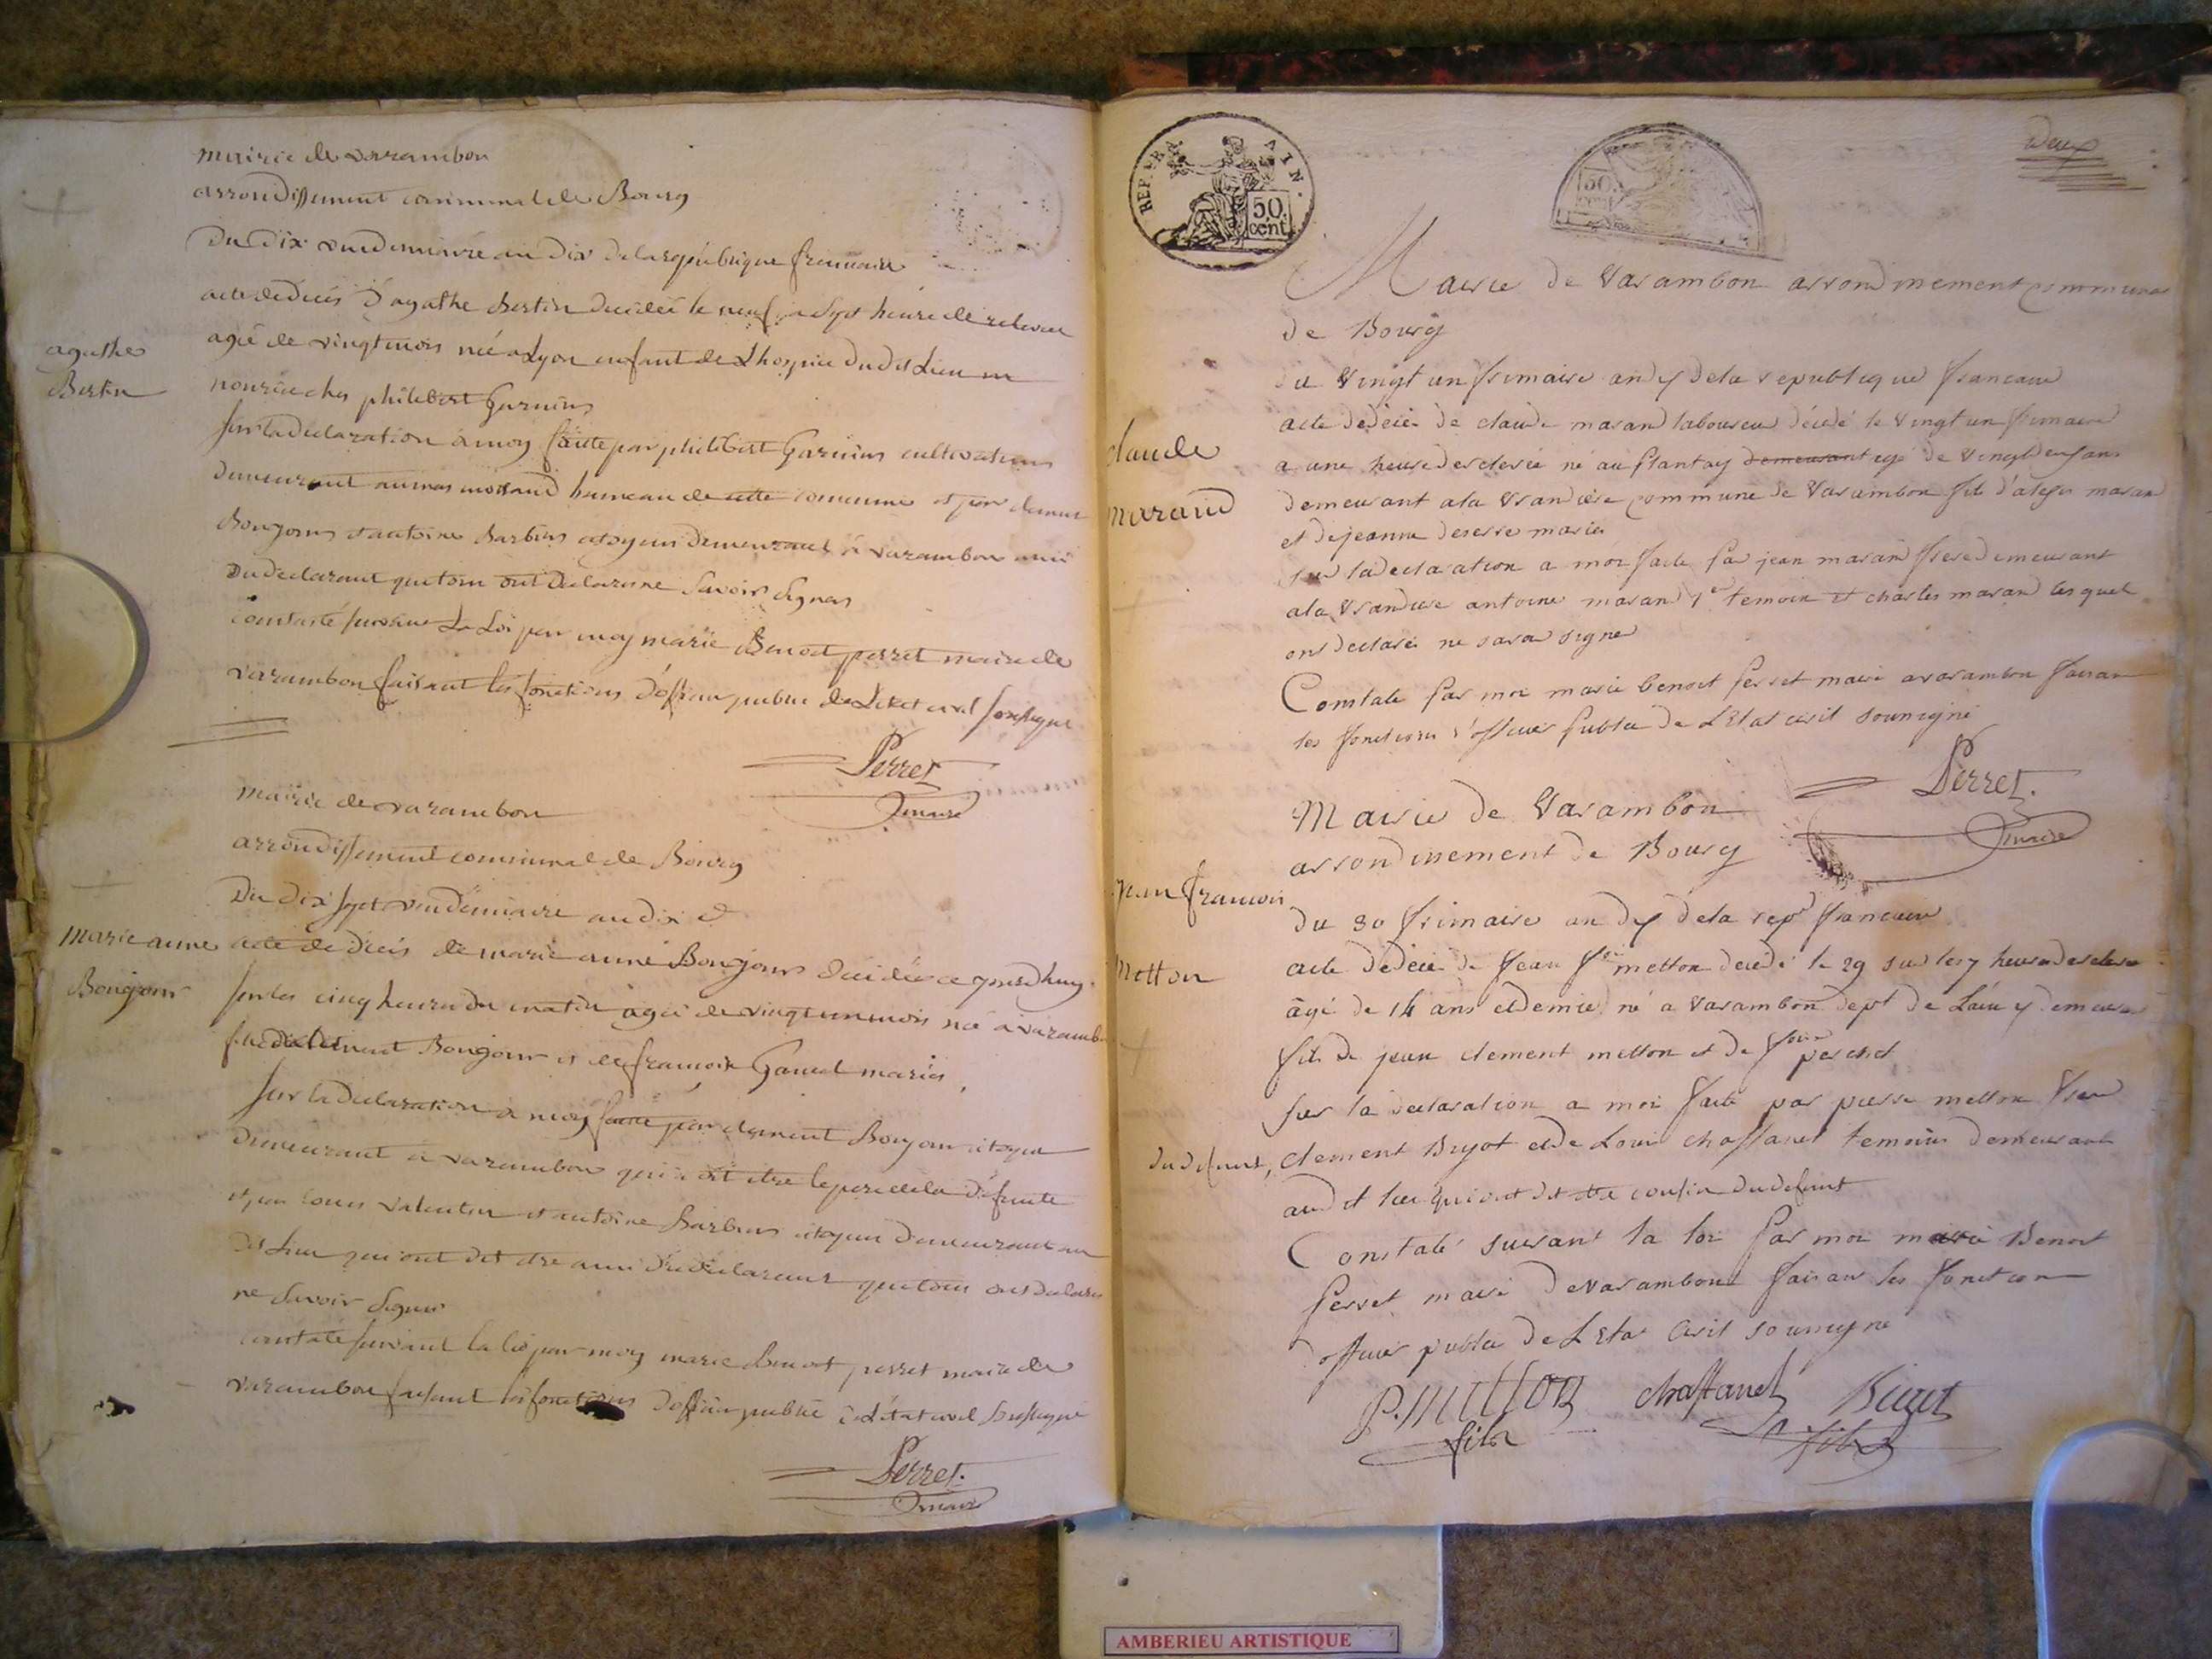 mairie de varrambon
arrondissement communal de Bourg
Du Dix vendemiaire an Dix de la republique francaise
acte de déces d'agathe Bertin decedée le neuf a sept heure de relevee
agathe
Bertin
agée de vingt mois née a Lyon enfant de Lhospice dudit Lieu
nourrie ches philibert Garnier
sur la declaration a moy faitte par philibert Garnier cultivateur
demeurant au mas morand hameau de cette commune et par
Bonjour et antoine Barbier citoyens demeurant à varambon amis
du declarant que tous ont declaré ne savoir signer
constaté suivant La Loi par moy marie Benoit perret maire de
varambon faisant les fonctions d'officier public de Letat civil soussigné
Perret
maire
mairie de varambon
arrondissement communal de Bourg
Du dix sept vendémiaire an dix
marie anne
Bonjour
acte de déces de marie anne Bonjour décédée ce jourdhuy
sur les cinq heures du matin agée de vingt un mois née à varambon
fille de Clement Bonjour et de francoise Ganet mariés
sur la declaration a moy faitte par clement Bonjour citoyen
demeurant a varambon qui a dit etre le pere de la défunte
et par Louis valentin et antoine Barbier citoyens demeurant au
dit Lieu qui ont dit etre amis du déclarant que tous ont declaré
ne savoir signer
constaté suivant la loi par moy marie Benoit perret maire de
varambon faisant les fonctions d'officier public de Létat civil soussigné
Perret.
maire
deux
REP. FRA. AIN.
50 cent.
50 cent
Mairie de Varambon arrondissement communal
de Bourg
du vingt un frimaire an dix de la republique francaise
claude
marand
acte dedéces de claude marand laboureur décédé le vingt un frimaire
a une heure de relevée né au plantay demeurant agé de vingt deux ans
demeurant a la commune de Varambon fils d'alexis marand
et de jeanne deserre mariés
sur la declaration a moi faite par jean marand frere demeurant
a la antoine marand 1er temoin et charles marand les quels
ont declaré ne savoir signer
Constaté par moi marie benoit perret maire a varambon faisant
les fonctions d'officier public de L'Etat civil soussigné
Perret.
maire
Mairie de Varambon
arrondissement de Bourg
jean francois
Metton
du 30 frimaire an dix de la rep. francaise
acte dedéces de Jean fois metton decedé le 29 sur les 7 heures de relevée
âgé de 14 ans et demie né a Varambon dept de Lain y demeurant
fils de jean clement metton et de
sur la declaration a moi faite par pierre metton frere
du defunt, clement Bizot et de Louis chaffanet temoins demeurant
au dit lieu qui ont dit etre cousin du defunt
Constaté suivant la loi par moi marie Benoit
Perret maire de varambon faisant les fonction
d'officier public de L Etat Civil soussigné
P. metton chaffanel Bizot
fils fils
AMBERIEU ARTISTIQUE